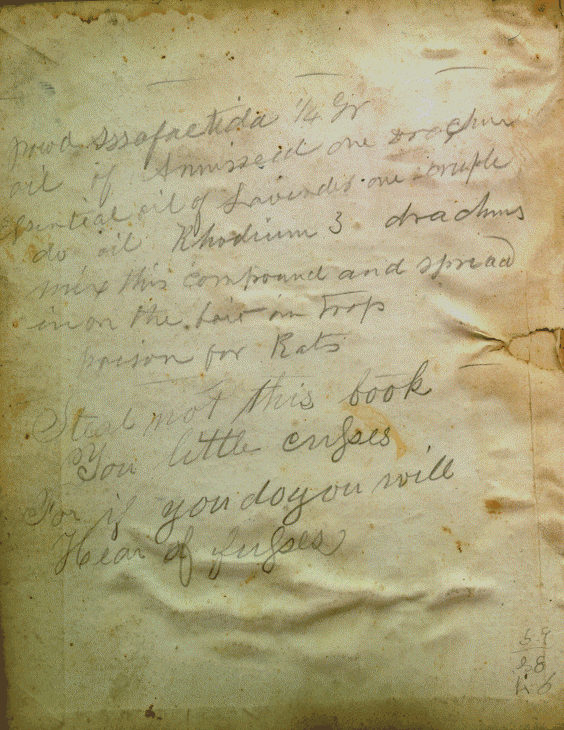 powd Assafaetida 1/4 Gr
oil of Annisseed one drachm
Essential oil of Lavender one scruple
do oil Rhodium 3 drachms
mix this compound and spread
in on the bait in trap
poison for Rats
Steal not this book
You little cusses
For if you do you will
Hear of fusses
59
58